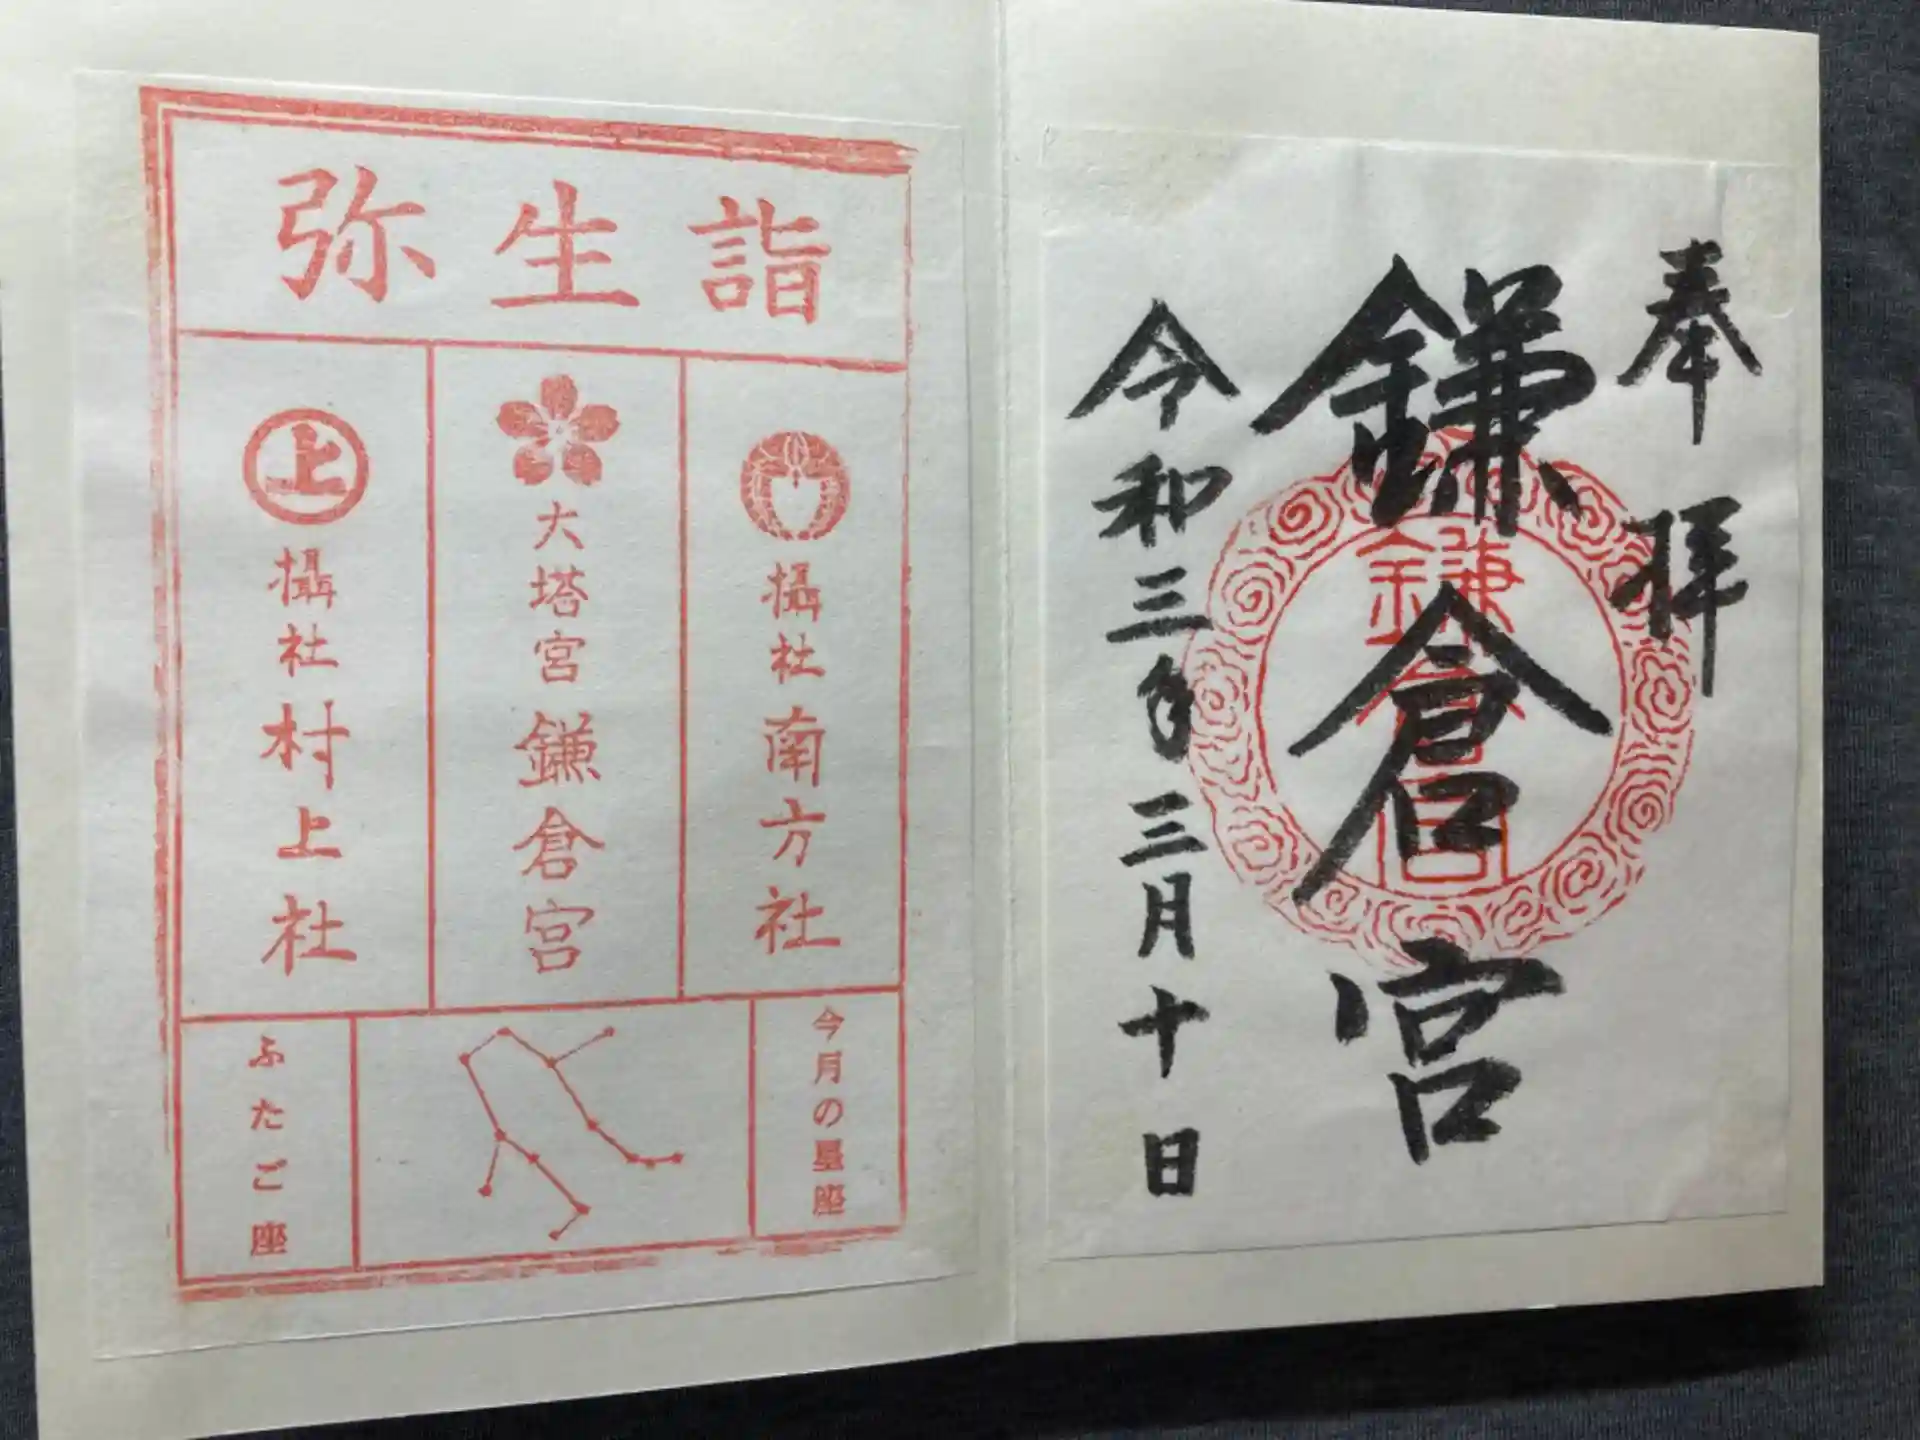 奉拝
鎌倉宮
鎌倉宮
令和三年三月十日
弥生詣
攝社南方社
大塔宮鎌倉宮
上
攝社村上社
今月の星座
ふたご座